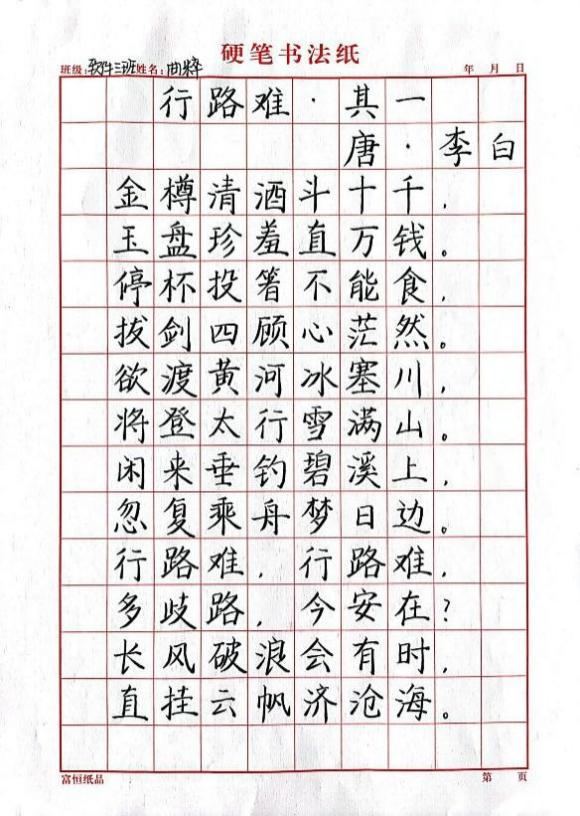 硬笔书法纸
班级： 三班 姓名： 年 月 日
行路难·其一
唐·李白
金樽清酒斗十千，
玉盘珍羞直万钱。
停杯投箸不能食，
拔剑四顾心茫然。
欲渡黄河冰塞川，
将登太行雪满山。
闲来垂钓碧溪上，
忽复乘舟梦日边。
行路难，行路难，
多歧路，今安在？
长风破浪会有时，
直挂云帆济沧海。
富恒纸品 第 页